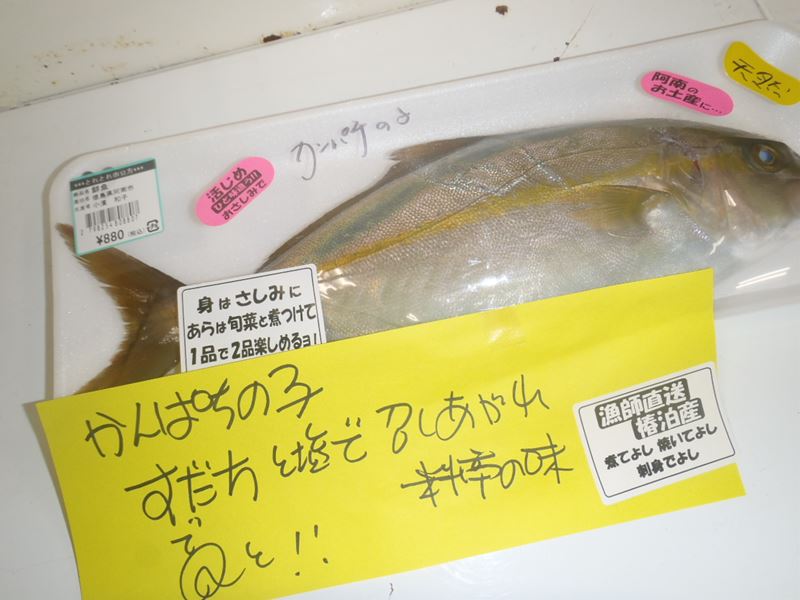 天然
阿南の
お土産に…
カンパチの子
活じめ
おさしみで
***とれとれ市公方***
鮮魚
徳島県阿南市
小濱 和子
¥880 (税込)
身はさしみに
あらは旬菜と煮つけて
1品で2品楽しめるョ!
かんぱちの子
すだちと塩で召しあがれ
料亭の味
漁師直送
椿泊産
煮てよし 焼いてよし
刺身でよし